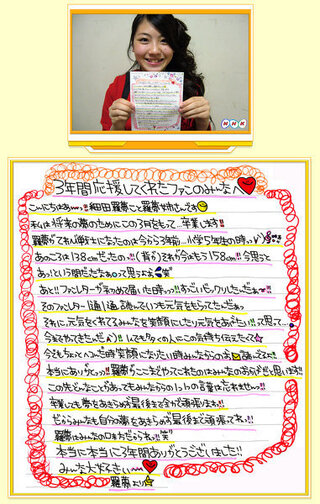 NHK
3年間応援してくれたファンのみんなへ
こんにちはぁーっ!!細田羅夢こと羅夢姉さんです
私は将来の夢のためにこの3月をもって…卒業します!!
羅夢がてれび戦士になったのは今から3年前…小学5年生の時っ
あのころは138cmだったの…!!(昔か)それが今はもう158cm!!今思うと
あっ!という間だったなぁって思うよぉ 笑"
あと!!ファンレターが初めて届いた時っっ!!すっごいビックリしたんだぁー
そのファンレター1通1通読んでいつも元気をもらってたんだぁっ
それに、元気をくれてるみんなを笑顔にしたり元気をあげたい!!って思って…
今までやってきたんだ
今もちょっとへこんだ時笑顔になりたい時みんなからの
本当にありがとっっ!!羅夢がここまでやってこれたのはみんなのおかげだと思います!!
この先どんなことがあってもみんなからの1つ1つの言葉は忘れませんっっ!!
卒業しても夢をあきらめず最後まで全力で頑張ります!!
だからみんなも自分の夢をあきらめず最後まで頑張ってねっ!!
羅夢はみんなの味方だからねっ!!笑"
本当に本当に3年間ありがとうございました!!
みんな大好きぃ
羅夢より